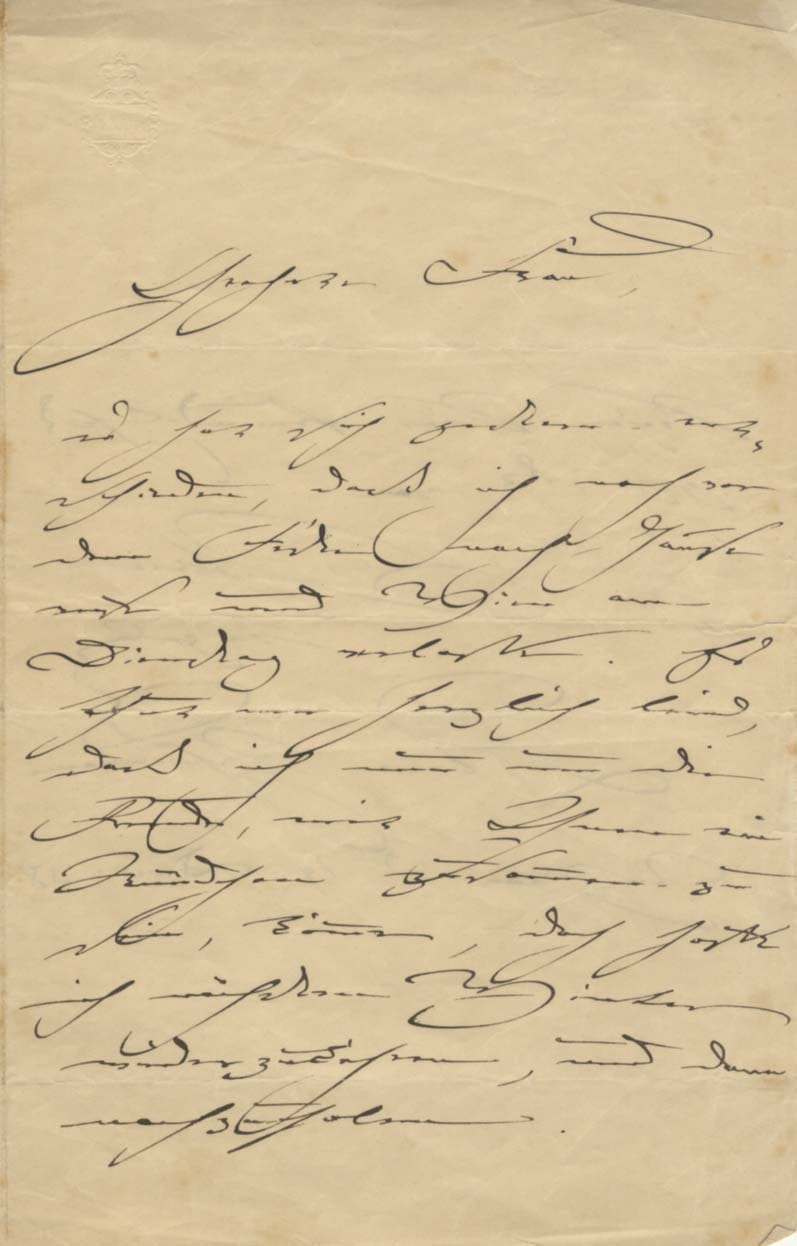 Geehrte Frau,
es hat sich gestern ent-
schieden, daß ich noch vor
dem Feste nach Hause
reise und Wien am
Dienstag verlasse. Es
thut mir herzlich leid,
daß ich nun um die
Freude, mit Ihnen ein
Stündchen zusammen zu
sein, komme, doch hoffe
ich nächsten Winter
wiederzukehren, und dann
nachzuholen.